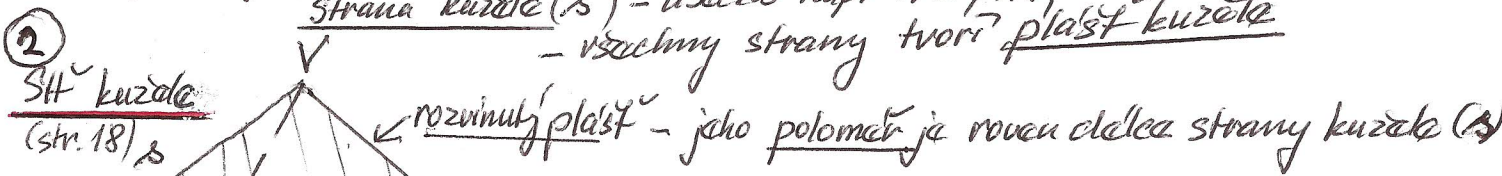 strana kužele (s) –
② – všechny strany tvoří plášť kužele
V
Síť kužele
rozvinutý plášť – jeho poloměr je roven délce strany kužele (s)
(str. 18) s